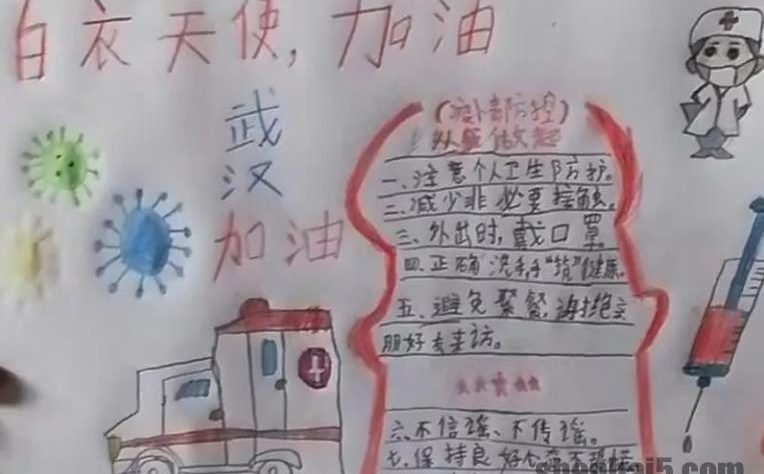 白衣天使,加油
武
汉
加油
一、注意个人卫生防护。
二、减少非必要接触。
三、外出时,戴口罩。
四、正确洗手,"筑"健康。
五、避免聚餐,谢绝亲
朋好友来访。
六、不信谣、不传谣。
七、保持良好心态不恐慌